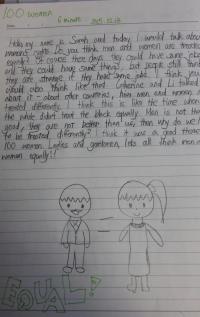 100 women
6 minute
Hello my name is Sarah and today I would talk about
women's rights. Do you think men and women are treated
equally? Of course these days, they could have same jobs
and they could have same things, but people still think
they are strange if they have same jobs. I think you
should also think like that. Catherine and I talked
about it - about other countries, how men and women
treated differently. I think this is like the time when
the white didn't treat the black equally. Men is not that
good, they are not better than us, then why do we
to be treated differently? I think it was a good those
100 women. Ladies and gentlemen, lets all think men
women equally!!
=
EQUAL!?